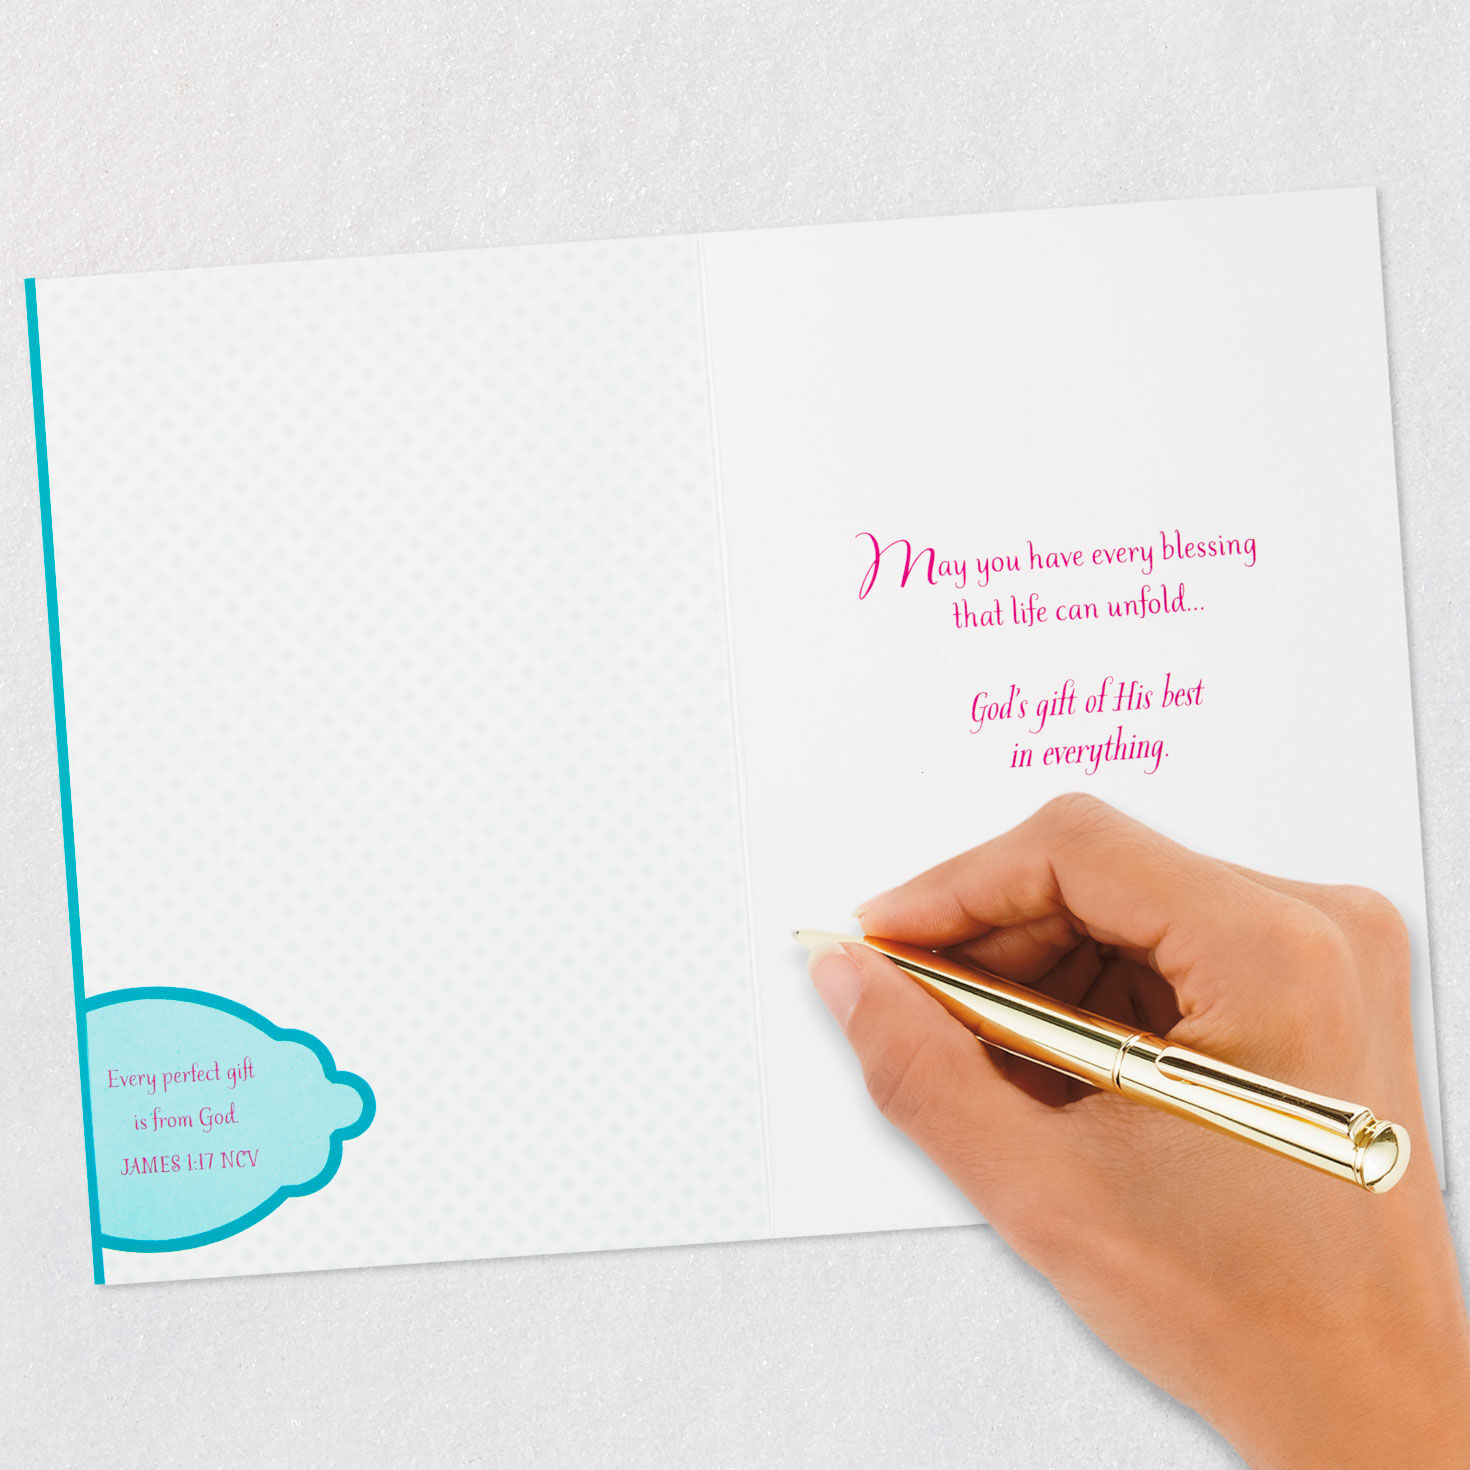 Every perfect gift
is from God.
JAMES 1:17 NCV
May you have every blessing
that life can unfold...
God's gift of His best
in everything.